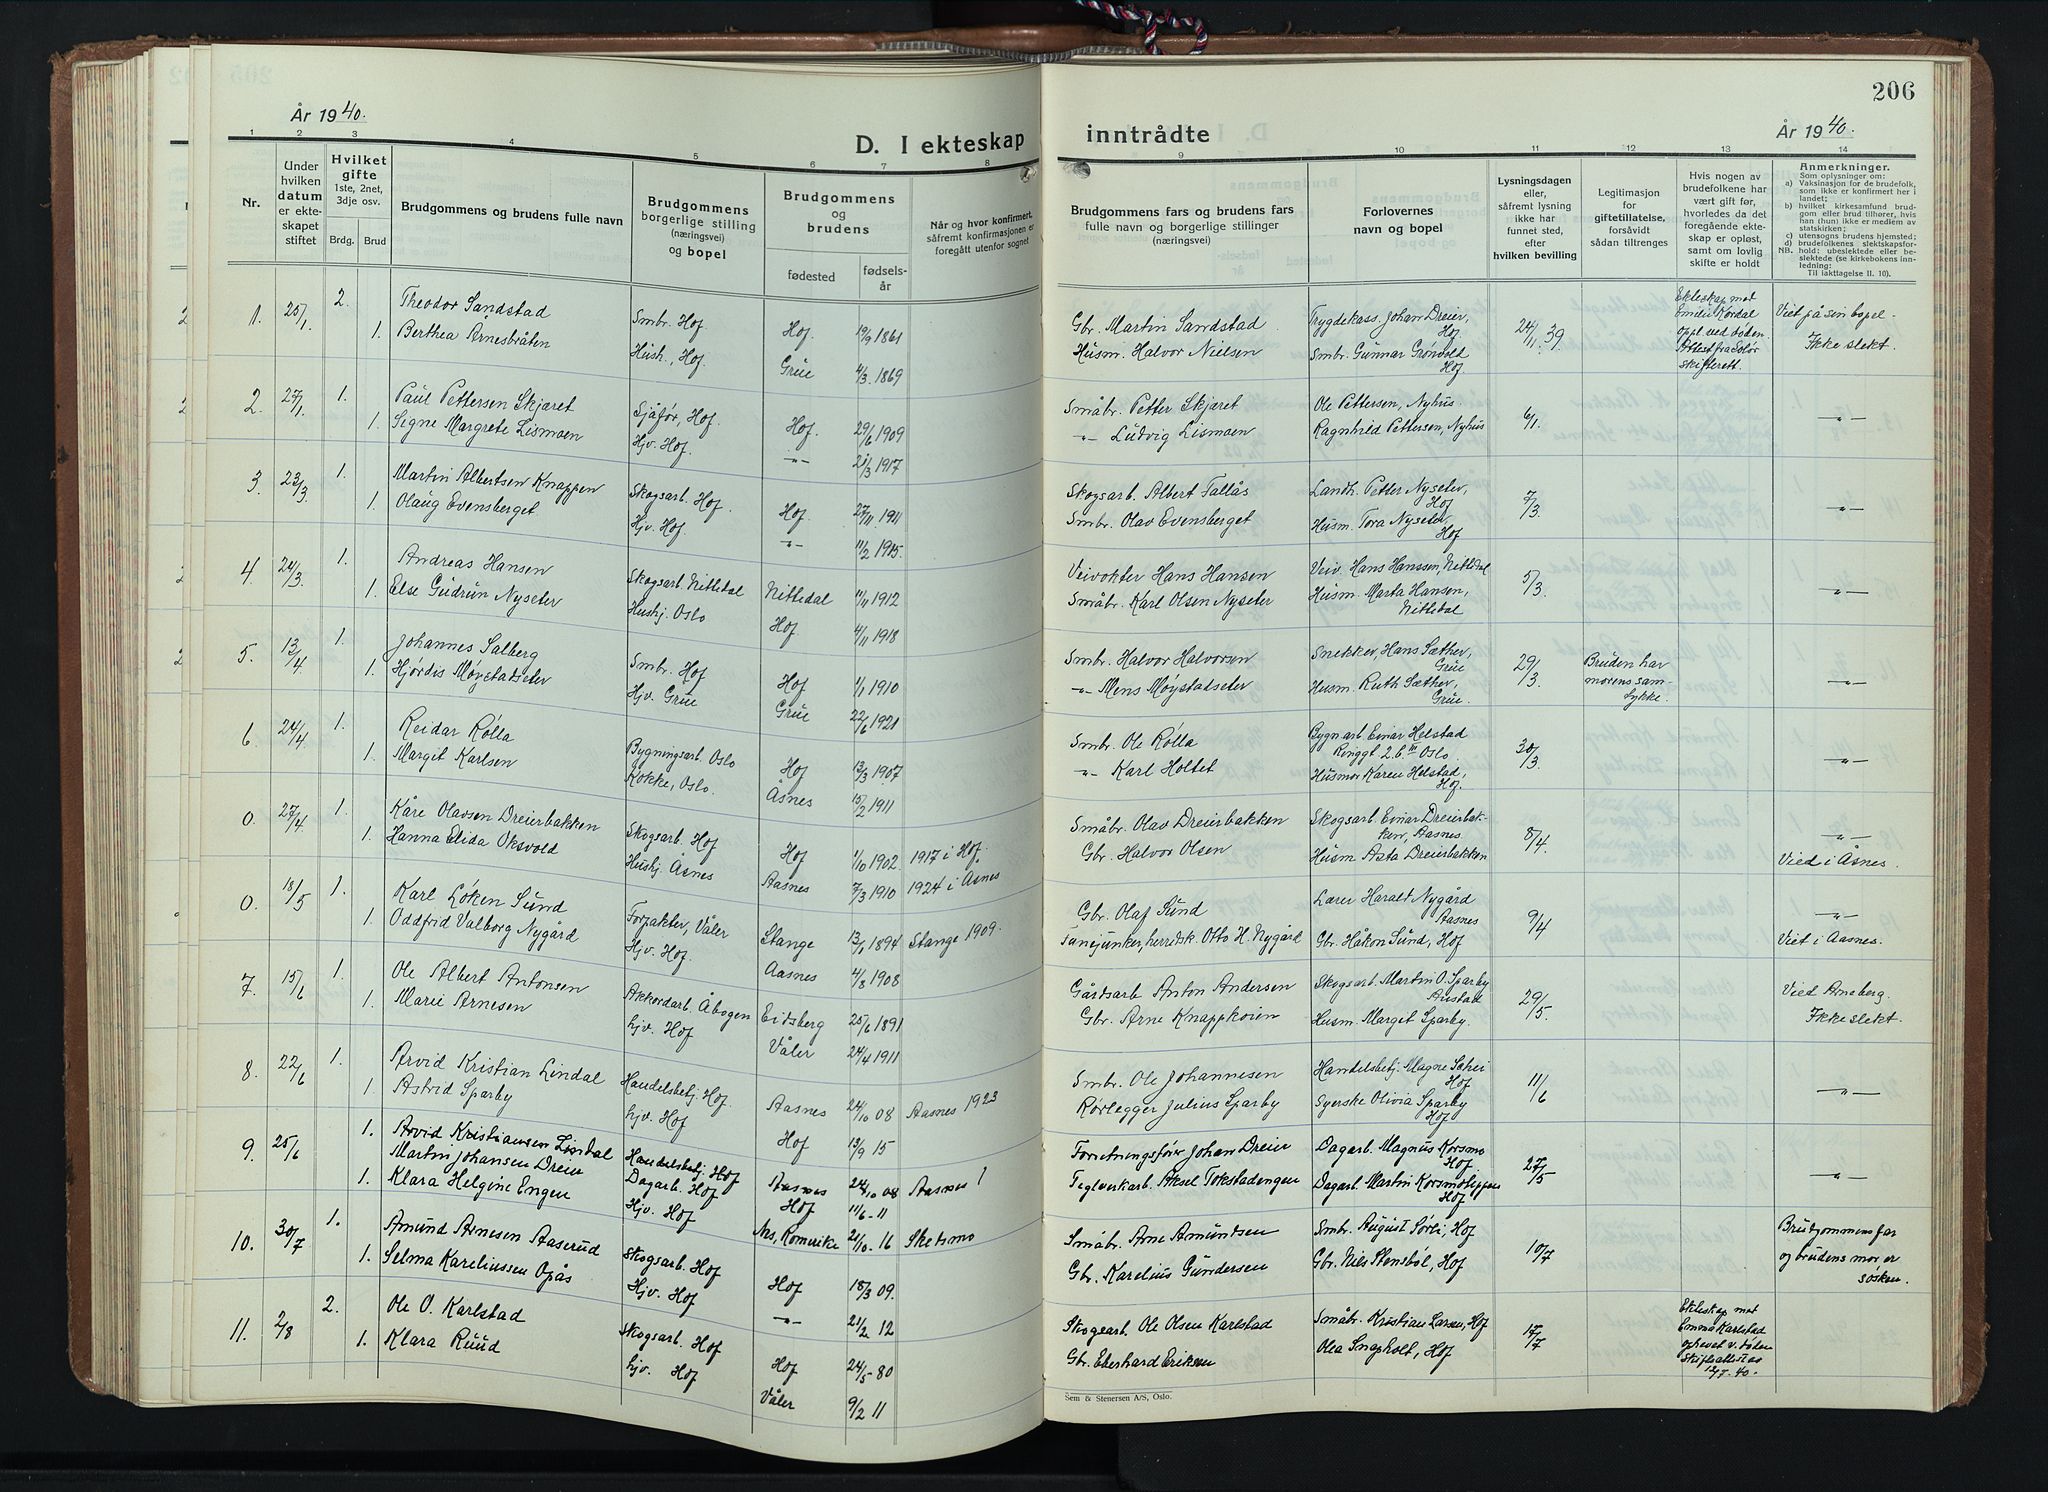 206
År 1940.
År 1940.
D. I ekteskap inntrådte
1 2 3 4 5 6 7 8 9 10 11 12 13 14
Nr.
Under hvilken datum er ekteskapet stiftet
Hvilket gifte 1ste, 2net, 3dje osv.
Brdg. Brud
Brudgommens og brudens fulle navn
Brudgommens borgerlige stilling (næringsvei) og bopel
Brudgommens og brudens
fødested
fødselsår
Når og hvor konfirmert, såfremt konfirmasjonen er foregått utenfor sognet
Brudgommens fars og brudens fars fulle navn og borgerlige stillinger (næringsvei)
Forlovernes navn og bopel
Lysningsdagen eller, såfremt lysning ikke har funnet sted, efter hvilken bevilling
Legitimasjon for giftetillatelse, forsåvidt sådan tiltrenges
Hvis nogen av brudefolkene har vært gift før, hvorledes da det foregående ekteskap er opløst, samt om lovlig skifte er holdt
Anmerkninger.
Som oplysninger om:
a) Vaksinasjon for de brudefolk, som ikke er konfirmert her i landet:
b) hvilket kirkesamfund brudgom eller brud tilhører, hvis han (hun) ikke er medlem av statskirken;
c) utensogns brudens hjemsted;
d) brudefolkenes slektskapsforhold: ubeslektede eller beslektede (se kirkebokens innledning:
NB. Til iakttagelse II. 10).
1. 25/1. 2. Theodor Sandstad Smbr. Hof Hof. 19/9 1861 Gbr. Martin Sandstad Trygdekass. Johan Dreier, Hof 24/11. 39 Ekteskap mot Emilie Kordal oppl. ved døden. Attest fra Solør skifterett. Viet på sin bopel.
1. Berthea Arnesbråten Hush. Hof. Grue 4/3. 1869 Husm. Halvor Nielsen Smbr. Gunnar Grønvold Hof. Ikke slekt.
2. 27/1. 1. Paul Pettersen Skjæret Sjåfør, Hof. Hof. 29/6 1909 Småbr. Petter Skjæret Ole Pettersen, Nyhus. 6/1. -"-
1. Signe Margrete Lismoen Hjv. Hof. -"- 21/3 1917 -"- Ludvig Lismoen Ragnhild Pettersen, Nyhus
3. 23/3. 1. Martin Albertsen Knappen Skogsarb. Hof. Hof. 27/11 1911 Skogsarb. Albert Tallås Landh. Petter Nyseter, Hof 7/3. -"-
1. Olaug Evensberget Hjv. Hof. -"- 11/2 1915. Smbr. Olav Evensberget Husm. Tora Nyseter, Hof
4. 24/3. 1. Andreas Hansen Skogsarb. Nittedal Nittedal 11/11 1912 Veivokter Hans Hansen Veiv. Hans Hanssen, Nittedal 5/3. -"-
1. Else Gudrun Nyseter Hushj. Oslo Hof 4/11 1918 Småbr. Karl Olsen Nyseter Husm. Marta Hansen, Nittedal
5. 13/4. 1. Johannes Salberg Smbr. Hof Hof 1/1 1910 Smbr. Halvor Halvorsen Snekker, Hans Sæther, Grue 29/3. Bruden har morens samtykke. -"-
1. Hjørdis Møystadseter Hjv. Grue Grue 22/6 1921 -"- Mens Møystadseter Husm. Ruth Sæther, Grue.
6. 24/4 1. Reidar Rølla Bygningsarb. Oslo Hof 13/3 1907 Smbr. Ole Rølla Bygn.arb. Einar Helstad Ringgt 2 b. Oslo. 30/3. -"-
1. Margit Karlsen Kokke, Oslo. Åsnes 15/2 1911 -"- Karl Holtet Husmor Karen Helstad, Hof.
0. 27/4 1. Kåre Olavsen Dreierbakken Skogsarb. Hof Hof 1/10 1902. 1917 i Hof. Småbr. Olav Dreierbakken Skogsarb. Einar Dreierbakken, Aasnes. 8/4. -"-
1. Hanna Elida Oksvold Hushj. Åsnes Aasnes 7/3 1910 1924 i Åsnes Gbr. Halvor Olsen Husm. Asta Dreierbakken Vied i Åsnes.
0. 18/5 1. Karl Løken Sund Forpakter, Våler Stange 13/6 1894 Stange 1909. Gbr. Olaf Sund Lærer Haralt Nygård Aasnes 9/4 -"-
1. Oddfrid Valborg Nygård Hjv. Hof. Aasnes 4/8 1908 Fanejunker, herredsk. Otto H. Nygård Gbr. Håkon Sund, Hof Viet i Aasnes.
7. 15/6 1. Ole Albert Antonsen Akkordarb. Åbogen Eidsberg 25/6 1891 Gårdsarb. Anton Andersen Skogsarb. Martin O. Sparby 29/5 Vied Arneberg.
1. Marie Arnesen hjv. Hof Våler 24/4 1911 Gbr. Arne Knappkoien Husm. Margit Sparby. Ikke slekt.
8. 22/6 1. Arvid Kristian Lindal Handelsbetj. Hof. Aasnes 24/10 08 Aasnes 1923 Smbr. Ole Johannesen Handelsbetj. Magne Sæhei Hof 11/6 -"-
1. Astrid Sparby hjv. Hof Hof 13/9 15 Rørlegger Julius Sparby Syerske Olivia Sparby Hof
Arvid Kristiansen Lindal Handelsbetj. Hof Aasnes 24/10 08 Aasnes
9. 25/6 1. Martin Johansen Dreier Dagarb. Hof Hof 11/6 - 11 Forretningsfører Johan Dreier Dagarb. Magnus Korsmo Hof. 27/5 -"-
1. Klara Helgine Engen Hjv. Hof Nes, Romerike 21/10 - 16 Sketsmo Teglverkarb. Aksel Tokstadengen Dagarb. Martin Korsmoteppen Hof
10. 30/7 1. Amund Arnesen Aaserud Skogsarb. Hof Hof 18/3 09. Småbr. Arne Amundsen Smbr. August Sørli, Hof 10/7 Brudgommens far og brudens mor er søsken.
1. Selma Kareliussen Opås Hjv. Hof -"- 21/2 12 Gbr. Karelius Gundersen Gbr. Nils Stensbøl, Hof
11. 2/8 2. Ole O. Karlstad Skogsarb. Hof Hof 24/5 - 80 Skogsarb. Ole Olsen Karlstad Småbr. Kristian Larsen, Hof 17/7 Ekteskap mot Emma Karlstad ophevet v. døden Skifteattest av
1. Klara Ruud hjv. Hof Våler 9/2 11 Gbr. Eberhard Eriksen Olea Snapholt, Hof
Sem & Stenersen A/S, Oslo.